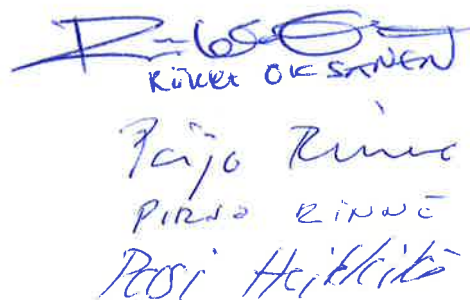 RiiKKA OKSANEN
Pirjo Rinne
PIRJO RINNE
Pasi Heikkilä